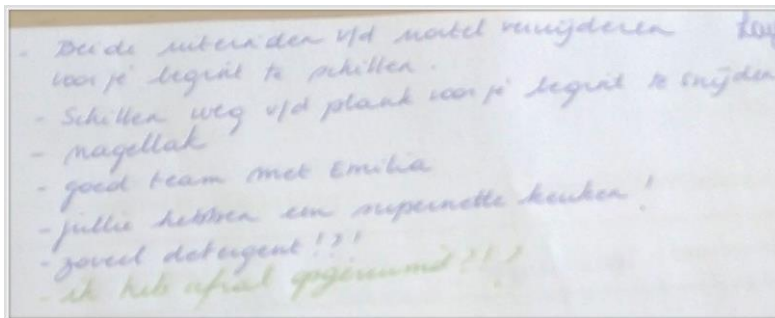 - Beide uiteinden v/d wortel verwijderen
voor je begint te schillen.
- Schillen weg v/d plank voor je begint te snijden
- nagellak
- goed team met Emilia
- jullie hebben een supernette keuken!
- zoveel detergent!?!
- ik heb afval opgeruimd?!?